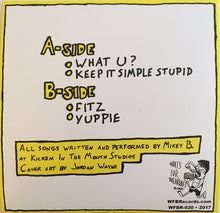 A-SIDE
WHAT U?
KEEP IT SIMPLE STUPID
B-SIDE
FITZ
YUPPIE
ALL SONGS WRITTEN AND PERFORMED BY MIKEY B.
AT KICKEM IN THE MOUTH STUDIOS
COVER ART BY JORDAN WAYNE
WHAT'S
FOR
BREAKFAST?
WFBRecords.com
WFBR-020 • 2017